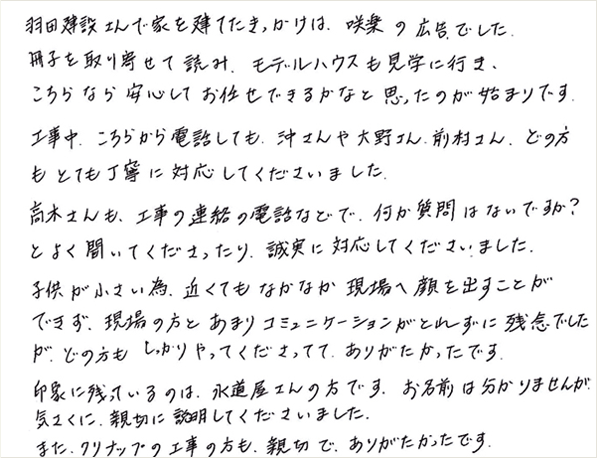 羽田建設さんで家を建てたきっかけは、咲楽の広告でした。
冊子を取り寄せて読み、モデルハウスも見学に行き、
こちらなら安心してお任せできるかなと思ったのが始まりです。
工事中、こちらから電話しても、沖さんや大野さん、前村さん、どの方
もとても丁寧に対応してくださいました。
高木さんも、工事の連絡の電話などで、何か質問はないですか？
とよく聞いてくださったり、誠実に対応してくださいました。
子供が小さい為、近くてもなかなか現場へ顔を出すことが
できず、現場の方とあまりコミュニケーションがとれずに残念でした
が、どの方もしっかりやってくださってて、ありがたかったです。
印象に残っているのは、水道屋さんの方です。お名前は分かりませんが、
気さくに、親切に説明してくださいました。
また、クリナップの工事の方も、親切で、ありがたかったです。